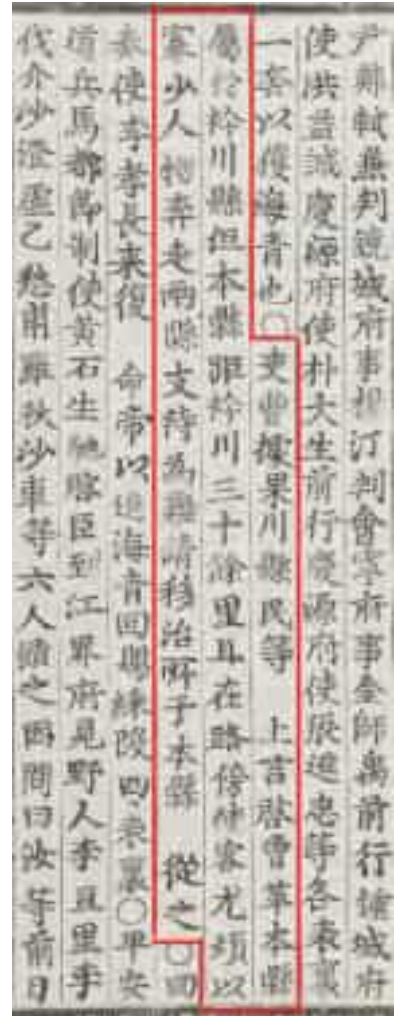 尹鄭軾兼判鏡城府事朴汀判會寧府事金師禹前行鍾城府
使洪益誠慶源府使朴大生前行慶源府使進忠等各表裏
一套以獲海青也○吏曹據果川縣民等 上言啓曹革本縣
屬於衿川縣但本縣距衿川三十餘里且在路傍使客尤煩以
寡少人物奔走兩縣支待爲難請移治所于本縣 從之○回
奏使李孝長來復 命帝以進海青回賜綵段四表裏○平安
道兵馬都節制使黃石生馳啓臣到江界府見野人李豆里李
伐介沙澄乙愁沙車等六人饋之因問曰汝等前日